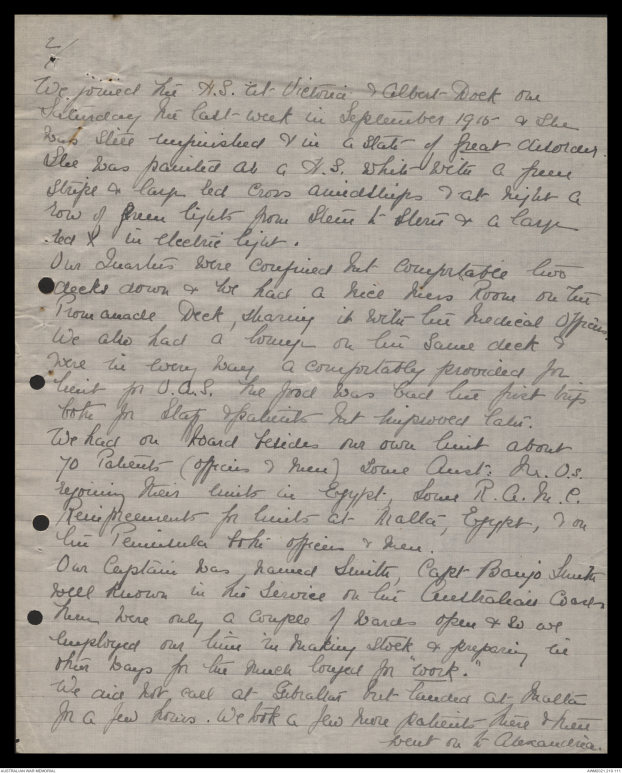 2/
We joined the H.S. at Victoria & Albert Dock on
Saturday the last week in September 1915 & she
was still unfinished & in a state of great disorder.
She was painted as a H.S. white with a green
stripe & large red cross amidships & at night a
row of green lights from stem to stern & a large
red X in electric light.
Our Quarters were confined but comfortable two
decks down & we had a nice Mess Room on the
Promanade Deck, sharing it with the Medical Officers.
We also had a lounge on the same deck &
were in every way a comfortably provided for
Unit for O.A.S. The food was bad the first trip
both for Staff & patients but improved later.
We had on board besides our own Unit about
70 Patients (officers & men) some Aust: M.O.s.
rejoining their Units in Egypt, some R.A.M.C.
Reinforcements for Units at Malta, Egypt, & on
the Peninsula both officers & men.
Our Captain was named Smith, Capt Banjo Smith
well known in his Service on the Australian Coast
There were only a couple of Wards open & so we
employed our time in making stock & preparing in
other ways for the much longed for "work."
We did not call at Gibraltar but landed at Malta
for a few hours. We took a few more patients here & then
went on to Alexandria.
AUSTRALIAN WAR MEMORIAL